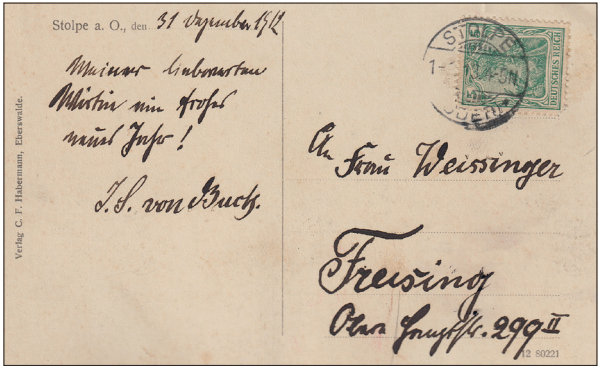 Stolpe a. O., den 31 Dezember 1912
Meiner liebwerten
Wirtin ein frohes
neues Jahr!
J. S. von Buch.
Verlag C. F. Habermann, Eberswalde.
STOLPE
(ODER)
DEUTSCHES REICH
An Frau Weissinger
Freising
Obere Hauptstr. 299 II
12 80221